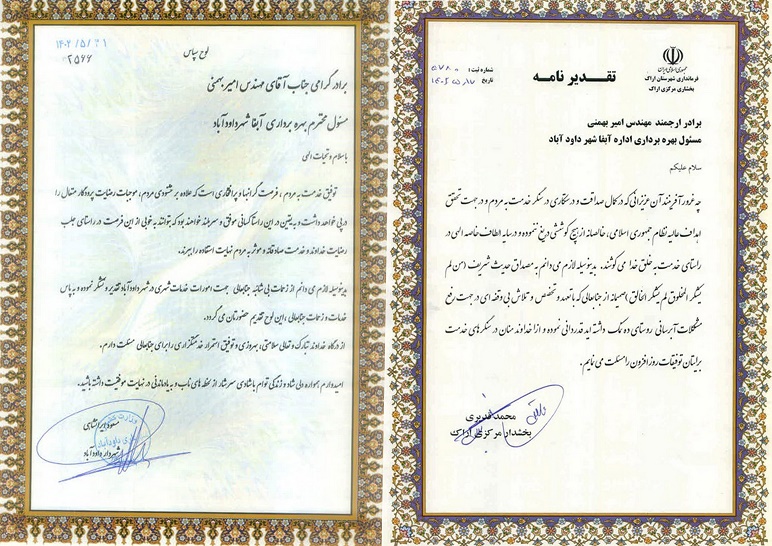 ۱۴۰۲/۵/۲۱
۲۵۶۶
لوح سپاس
برادر گرامی جناب آقای مهندس امیر بهمنی
مسئول محترم بهره برداری آبفا شهر داود آباد
با سلام و تحیات الهی
توفیق خدمت به مردم ، فرصت گرانبها و پرافتخاری است که علاوه بر خشنودی مردم، موجبات رضایت پروردگار متعال را
در پی خواهد داشت و به یقین در این راستا کسانی موفق و سربلند خواهند بود که بتوانند به خوبی از این فرصت در راستای جلب
رضایت خداوند و خدمت صادقانه و موثر به مردم نهایت استفاده را ببرند.
بدینوسیله لازم می دانم از زحمات بی شائبه جنابعالی جهت امورات خدمات شهری در شهر داود آباد تقدیر و تشکر نموده و به پاس
خدمات و زحمات جنابعالی ، این لوح تقدیم حضورتان می گردد.
از درگاه خداوند تبارک و تعالی سلامتی، بهروزی و توفیق استمرار خدمتگزاری را برای جنابعالی مسئلت دارم.
امیدوارم همواره دلی شاد و زندگی توام با شادی سرشار از لحظه های ناب و به یادماندنی در نهایت موفقیت داشته باشید.
مسعود ابراشاهی
شهردار داود آباد
جمهوری اسلامی ایران
فرمانداری شهرستان اراک
بخشداری مرکزی اراک
تقدیر نامه
شماره ثبت :
تاریخ
برادر ارجمند مهندس امیر بهمنی
مسئول بهره برداری اداره آبفا شهر داود آباد
سلام علیکم
چه غرور آفرینند آن عزیزانی که در کمال صداقت و درستکاری در سنگر خدمت به مردم و در جهت تحقق
اهداف عالیه نظام جمهوری اسلامی، خالصانه از هیچ کوششی دریغ ننموده و در سایه الطاف خاصه الهی در
راستای خدمت به خلق خدا می کوشند. بدینوسیله لازم می دانم به مصداق حدیث شریف (من لم
یشکر المخلوق لم یشکر الخالق) صمیمانه از جنابعالی که با تعهد و تخصص و تلاش بی وقفه ای در جهت رفع
مشکلات آبرسانی روستای ده نمک داشته اید قدردانی نموده و از خداوند منان در سنگرهای خدمت
برایتان توفیقات روز افزون را مسئلت می نمایم.
محمد قدیری
بخشدار مرکزی اراک